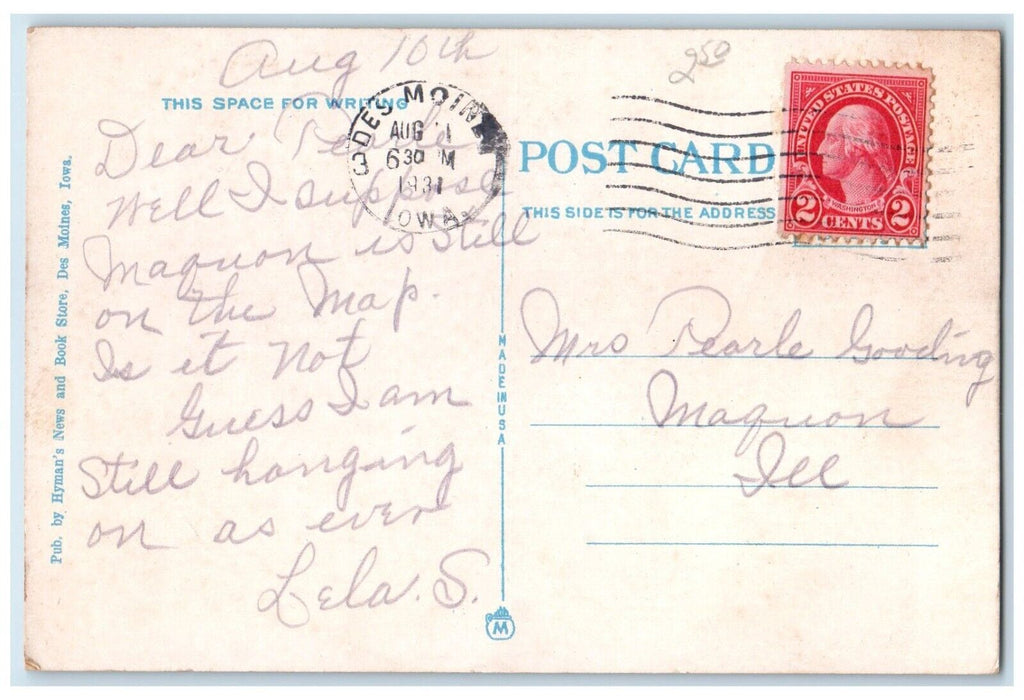 Aug 10th
250
THIS SPACE FOR WRITING
DES MOINES
AUG 11
6 30 PM
1931
IOWA
3
UNITED STATES POSTAGE
WASHINGTON
2 CENTS 2
POST CARD
THIS SIDE IS FOR THE ADDRESS
Dear Pearle
Well I suppose
Maquon is still
on the map.
Is it not
Guess I am
Still hanging
on as ever
Lela. S.
Mrs Pearle Gooding
Maquon
Ill
MADE IN USA
M
Pub. by Hyman's News and Book Store, Des Moines, Iowa.